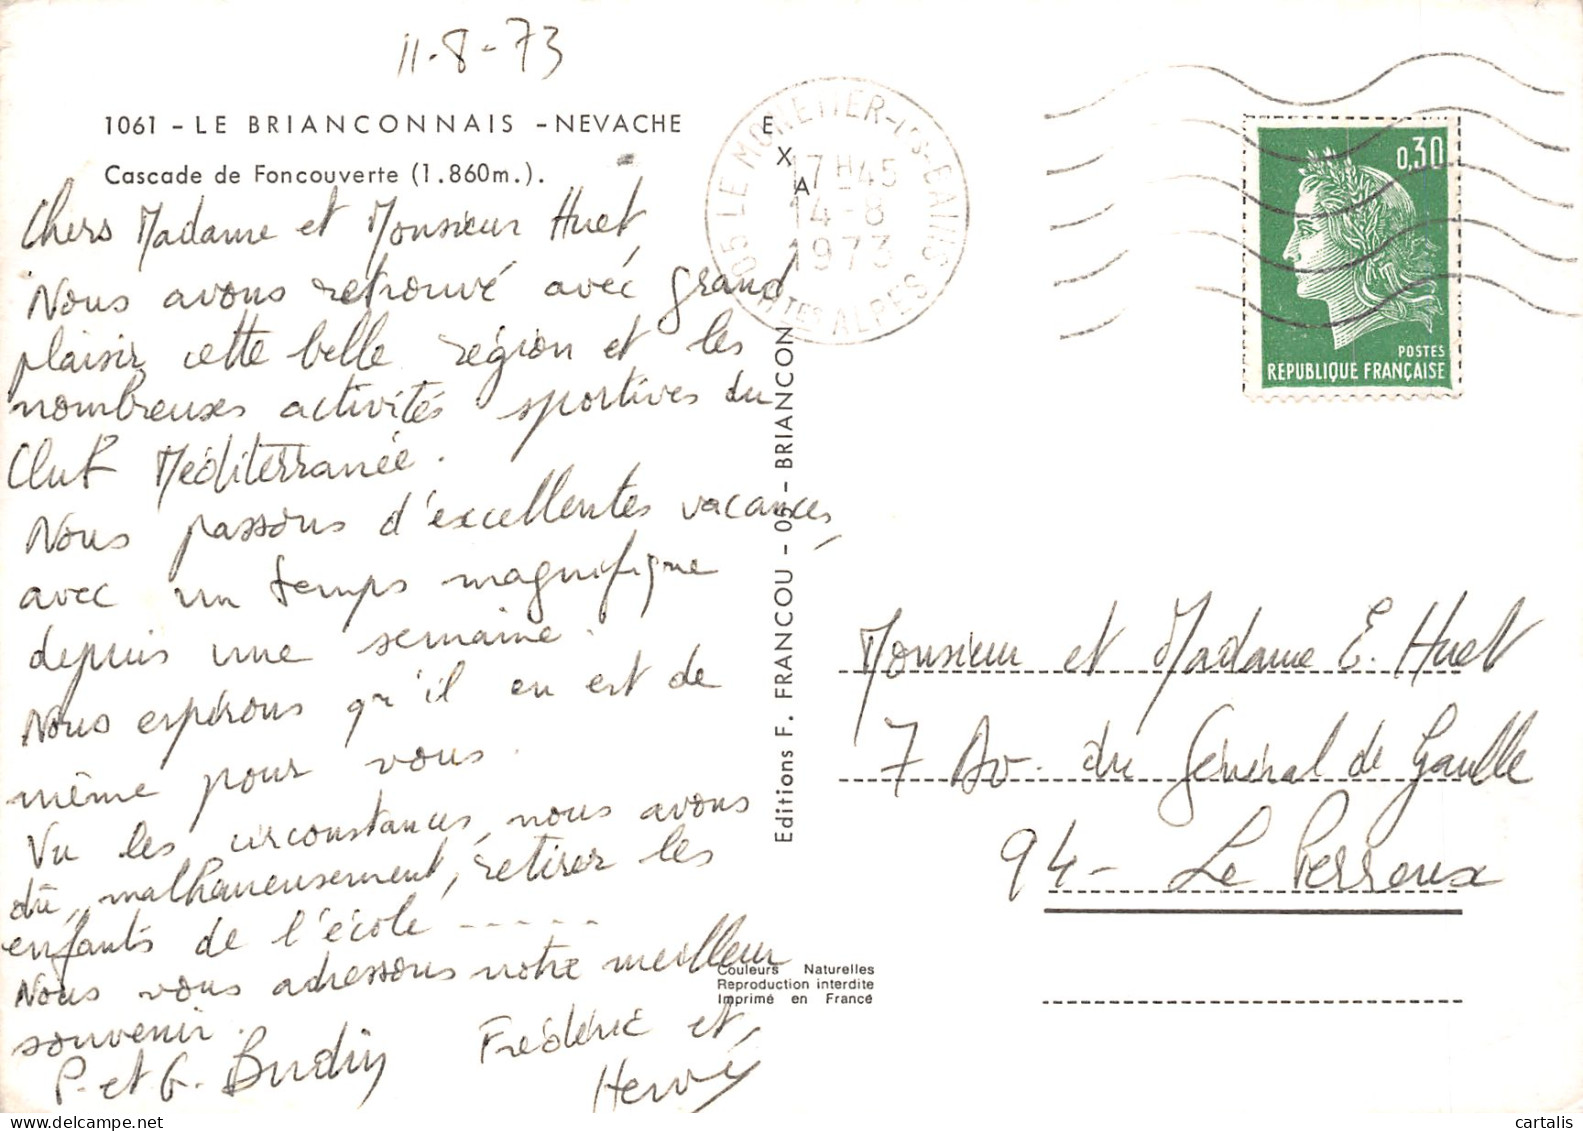 11-8-73
1061 - LE BRIANCONNAIS - NEVACHE
Cascade de Foncouverte (1.860m.).
Chers Madame et Monsieur Huet,
Nous avons retrouvé avec grand
plaisir cette belle région et les
nombreuses activités sportives du
Club Méditerranée.
Nous passons d'excellentes vacances,
avec un temps magnifique
depuis une semaine.
Nous espérons qu'il en est de
même pour vous.
Vu les circonstances, nous avons
dû, malheureusement, retirer les
enfants de l'école -----
Nous vous adressons notre meilleur
souvenir.
P. et G. Budin
Frédéric et
Hervé
E
X
A
05 LE MONETIER-LES-BAINS
17H45
14-8
1973
HTES ALPES
Editions F. FRANCOU - 05 - BRIANCON
0,30
POSTES
REPUBLIQUE FRANÇAISE
Monsieur et Madame E. Huet
7 Av. du Général de Gaulle
94- Le Perreux
Couleurs Naturelles
Reproduction interdite
Imprimé en France
cartalis